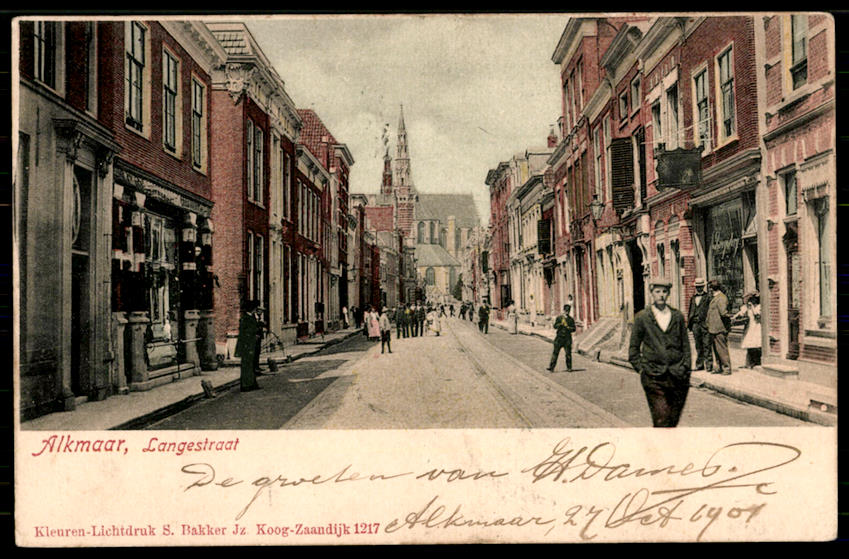 Alkmaar, Langestraat
De groeten van
Alkmaar, 27 Oct 1901
Kleuren-Lichtdruk S. Bakker Jz. Koog-Zaandijk 1217